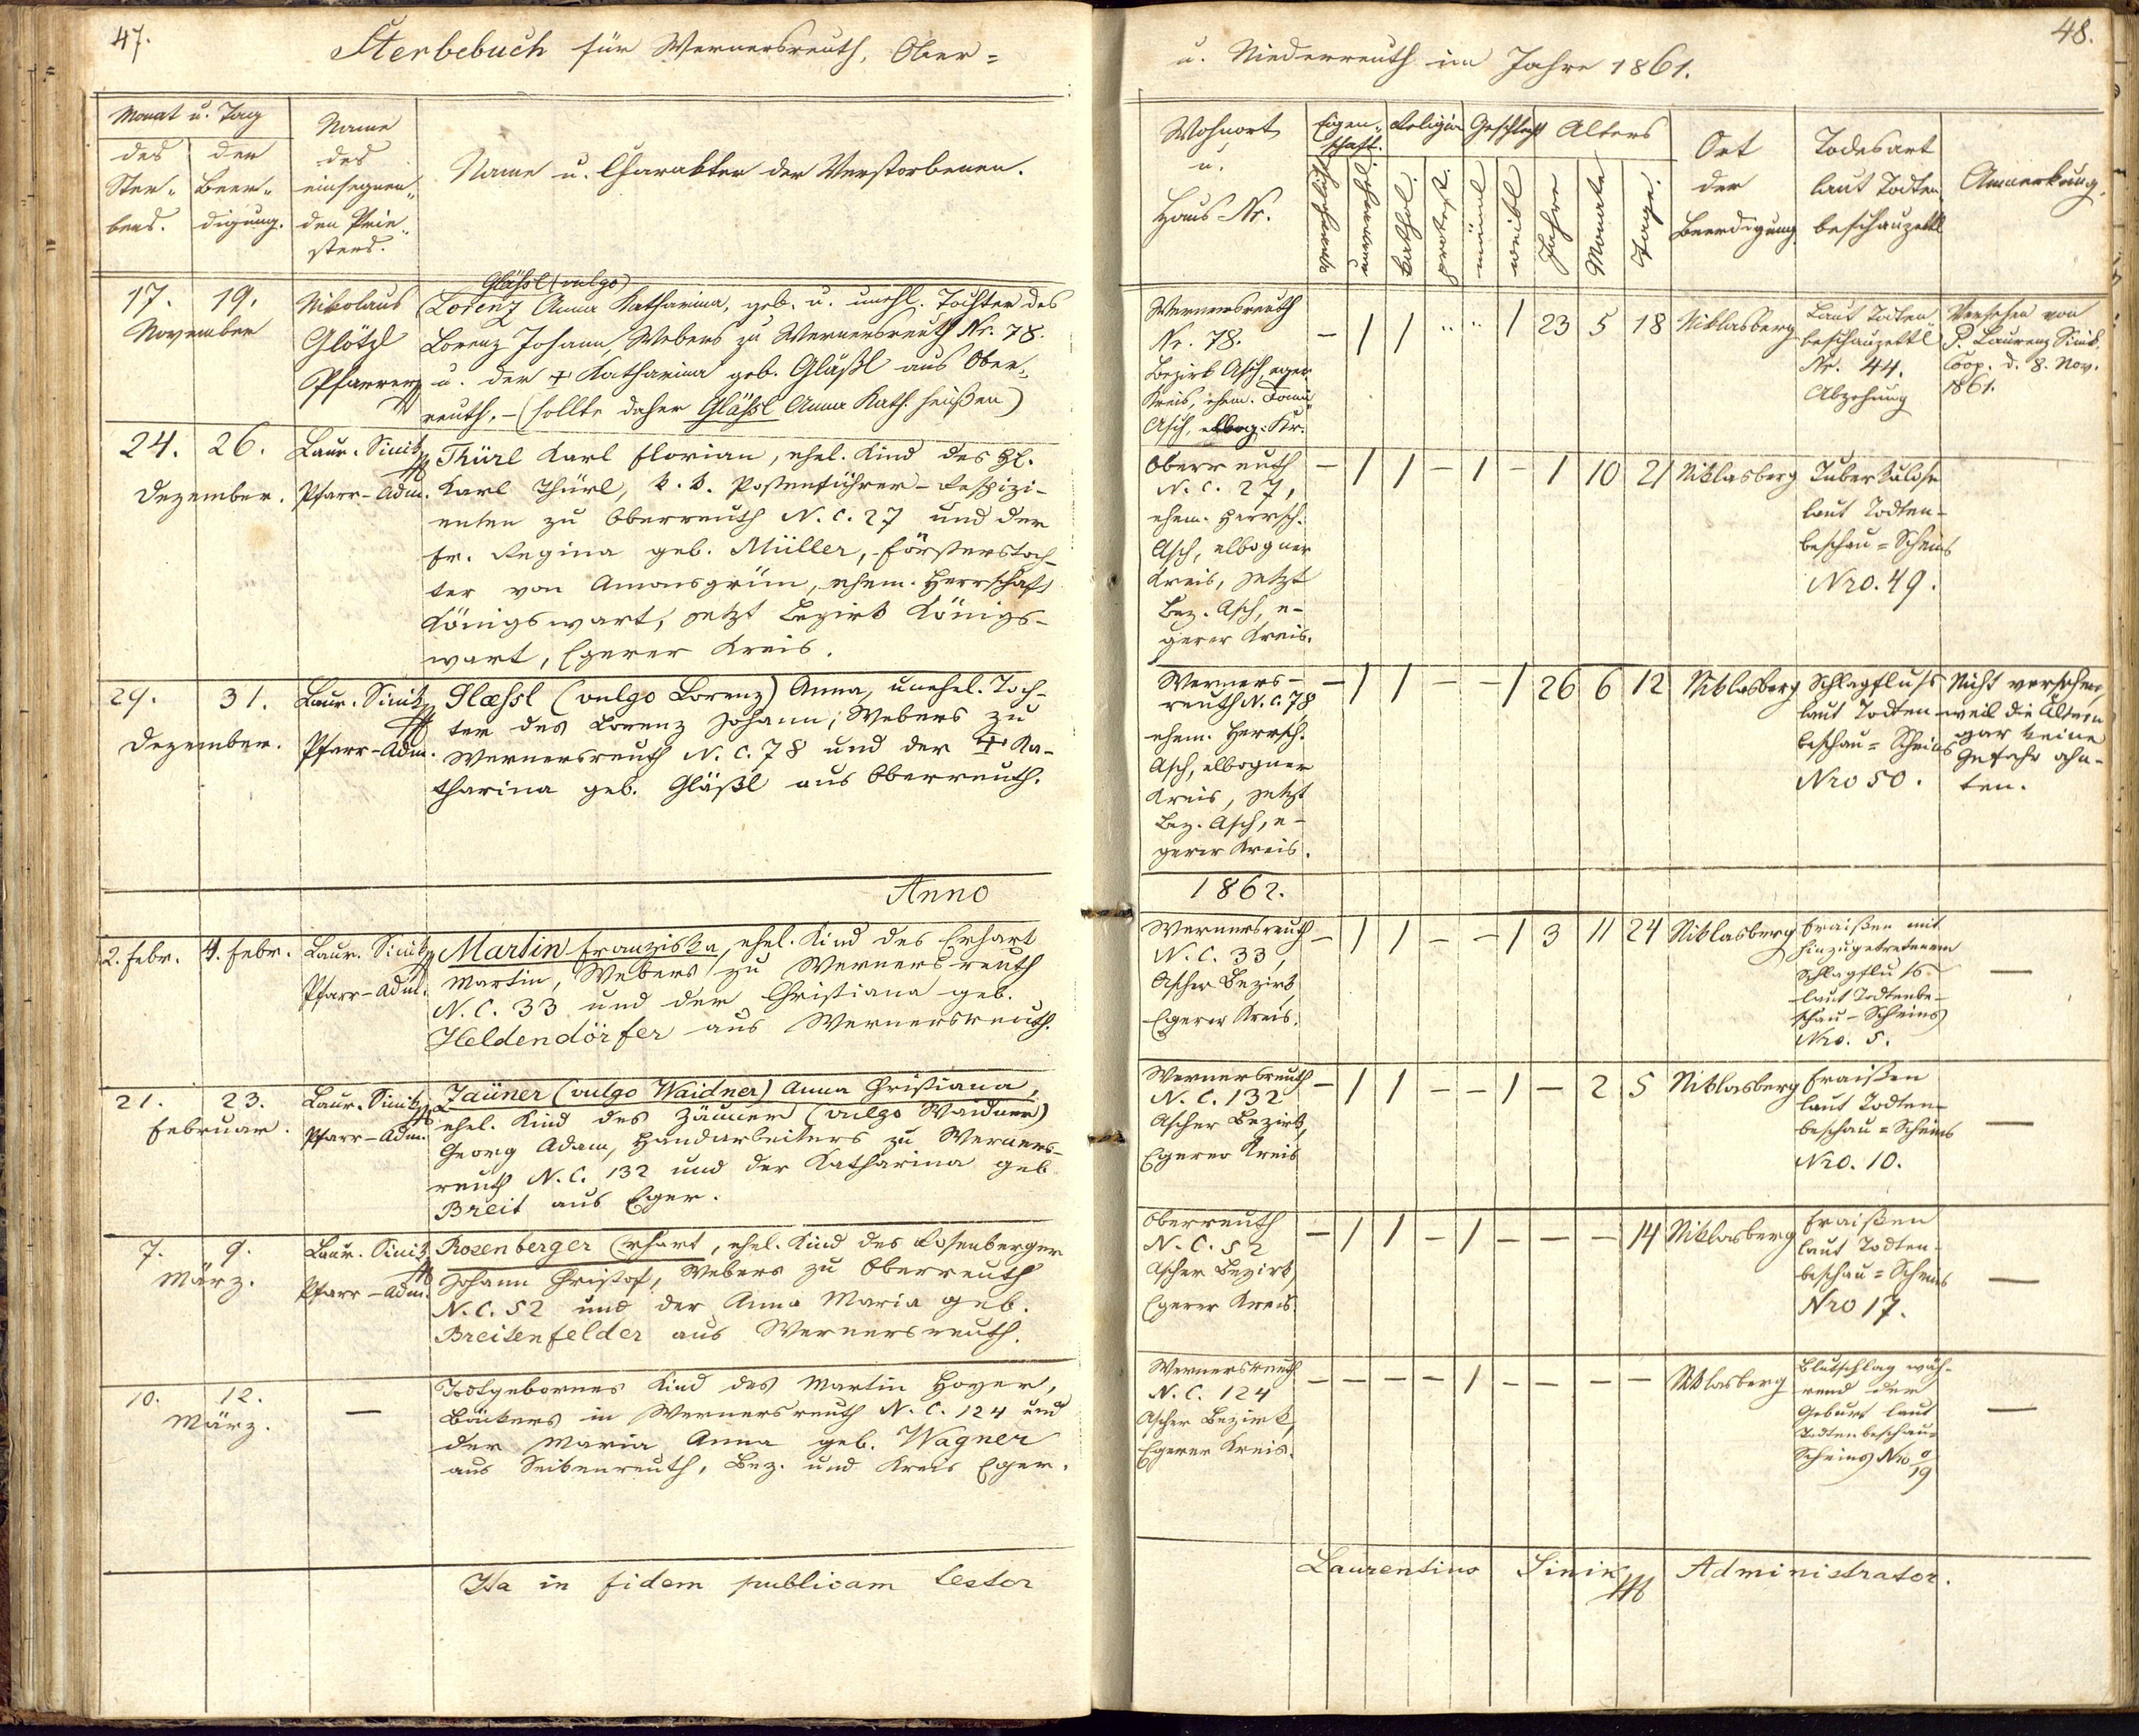 47.
Sterbebuch für Wernersreuth, Ober=
Monat u. Tag
des Ster-
bens.
der Beer-
digung.
Name
des
einsegnen-
den Prie-
sters.
Name u. Charakter der Verstorbenen.
17. 19.
November
Nikolaus
Glötzl
Pfarrer
Gläßl (vulgo)
Lorenz Anna Katharina, geb. u. unehl. Tochter des
Lorenz Johann, Webers zu Wernersreuth Nr. 78.
u. der + Katharina geb. Gläßl aus Ober-
reuth. – (sollte daher Gläßl Anna Kath. heißen)
24. 26.
Dezember.
Laur. Sinik
Pfarr-Adm.
Thürl Karl Florian, ehel. Kind des H.
Karl Thürl, k. k. Postenführer-Respizi-
enten zu Oberreuth N. C. 27 und der
Fr. Regina geb. Müller, Försterstoch-
ter von Amonsgrün, ehem. Herrschaft
Königswart, jetzt Bezirk Königs-
wart, Egerer Kreis.
29. 31.
Dezember.
Laur. Sinik
Pfarr-Adm.
Glæßl (vulgo Lorenz) Anna, unehel. Toch-
ter des Lorenz Johann, Webers zu
Wernersreuth N. C. 78 und der + Ka-
tharina geb. Gläßl aus Oberreuth.
Anno
2. Febr. 4. Febr.
Laur. Sinik
Pfarr-Adm.
Martin Franziska, ehel. Kind des Erhart
Martin, Webers zu Wernersreuth
N. C. 33 und der Christiana geb.
Heldendörfer aus Wernersreuth.
21. 23.
Februar.
Laur. Sinik
Pfarr-Adm.
Zäuner (vulgo Waidner) Anna Christiana,
ehel. Kind des Zäuner (vulgo Waidner)
Georg Adam, Handarbeiters zu Werners-
reuth N. C. 132 und der Katharina geb
Breit aus Eger.
7. 9.
März.
Laur. Sinik
Pfarr-Adm.
Rosenberger Erhart, ehel. Kind des Rosenberger
Johann Christof, Webers zu Oberreuth
N. C. 52 und der Anna Maria geb.
Breitenfelder aus Wernersreuth.
10. 12.
März.
—
Todtgebornes Kind des Martin Hoyer,
Bäckers in Wernersreuth N. C. 124 und
der Maria Anna geb. Wagner
aus Seibenreuth, Bez. und Kreis Eger.
Ita in fidem publicam testor
48.
u. Niederreuth im Jahre 1861.
Wohnort
u.
Haus-Nr.
Eigen-
schaft.
verehelicht
unverehel.
Religion
kathol.
protest.
Geschlecht
männl
weibl
Alters
Jahre
Monate
Tage.
Ort
der
Beerdigung
Todesart
laut Todten
beschauzettl
Anmerkung.
Wernersreuth
Nr. 78.
Bezirk Asch, eger.
Kreis, ehem. Domi.
Asch, elbog. Kr.
– 1 1 " " 1 23 5 18 Niklasberg
Laut Todten
beschauzettl
Nr. 44.
Abzehrung
Versehen von
P. Laurenz Sinik.
Coop. d. 8. Nov.
1861.
Oberreuth
N. C. 27,
ehem. Herrsch.
Asch, elbogner
Kreis, jetzt
Bez. Asch, e-
gerer Kreis.
– 1 1 – 1 – 1 10 21 Niklasberg
Tuberkulose
laut Todten-
beschau=Scheins
Nro. 49.
Werners-
reuth N. C. 78,
ehem. Herrsch.
Asch, elbogner
Kreis, jetzt
Bez. Asch, e-
gerer Kreis.
– 1 1 – – 1 26 6 12 Niklasberg
Schlagfluß
laut Todten-
beschau=Scheins
Nro 50.
Nicht versehen,
weil die Ältern
gar keine
Gefahr ahn-
ten.
1862.
Wernersreuth
N. C. 33,
Ascher Bezirk,
Egerer Kreis.
– 1 1 – – 1 3 11 24 Niklasberg
Fraißen mit
hinzugetretenem
Schlagfluß
laut Todtenbe-
schau-Scheins
Nro. 5.
—
Wernersreuth
N. C. 132
Ascher Bezirk,
Egerer Kreis
– 1 1 – – 1 – 2 5 Niklasberg
Fraißen
laut Todten-
beschau=Scheins
Nro. 10.
—
Oberreuth
N. C. 52
Ascher Bezirk,
Egerer Kreis.
– 1 1 – 1 – – – 14 Niklasberg
Fraißen
laut Todten-
beschau=Scheins
Nro 17.
—
Wernersreuth
N. C. 124
Ascher Bezirk,
Egerer Kreis.
– – – – 1 – – – – Niklasberg
Blutschlag wäh-
rend der
Geburt laut
Todtenbeschau=
Scheins Nro
19
—
Laurentius Sinik Administrator.